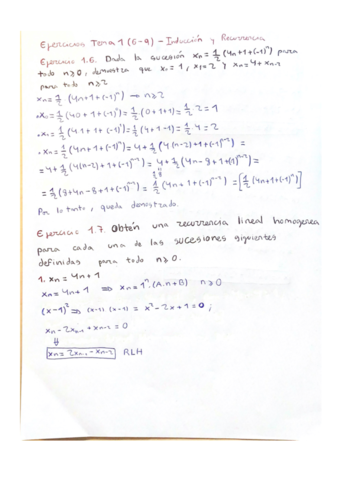 Ejercicios Tema 1 (6-9) - Inducción y Recurrencia
Ejercicio 1.6. Dada la sucesión xn = 1/2 (4n+1+(-1)^n) para
todo n≥0, demostra que x0=1, x1=2 y xn=4+xn-2
para todo n≥2
xn = 1/2 (4n+1+(-1)^n) → n≥2
·x0 = 1/2 (4·0+1+(-1)^0) = 1/2 (0+1+1) = 1/2 2 = 1
·x1 = 1/2 (4·1+1+(-1)^1) = 1/2 (4+1-1) = 1/2 4 = 2
·xn = 1/2 (4n+1+(-1)^n) = 4+1/2 (4(n-2)+1+(-1)^n-2) =
= 4+1/2 (4(n-2)+1+(-1)^n-2) = 4+1/2 (4n-8+1+(-1)^n-2) =
= 1/2 (8+4n-8+1+(-1)^n-2) = 1/2 (4n+1+(-1)^n-2) = [1/2 (4n+1+(-1)^n)]
Por lo tanto, queda demostrado.
Ejercicio 1.7. Obtén una recurrencia lineal homogénea
para cada una de las sucesiones siguientes
definidas para todo n≥0.
1. xn = 4n+1
xn = 4n+1 ⇒ xn = 1^n (A·n+B) n≥0
(x-1)^2 ⇒ (x-1)(x-1) = x^2-2x+1=0;
xn-2xn-1+xn-2=0
⇓
xn=2xn-1-xn-2 RLH